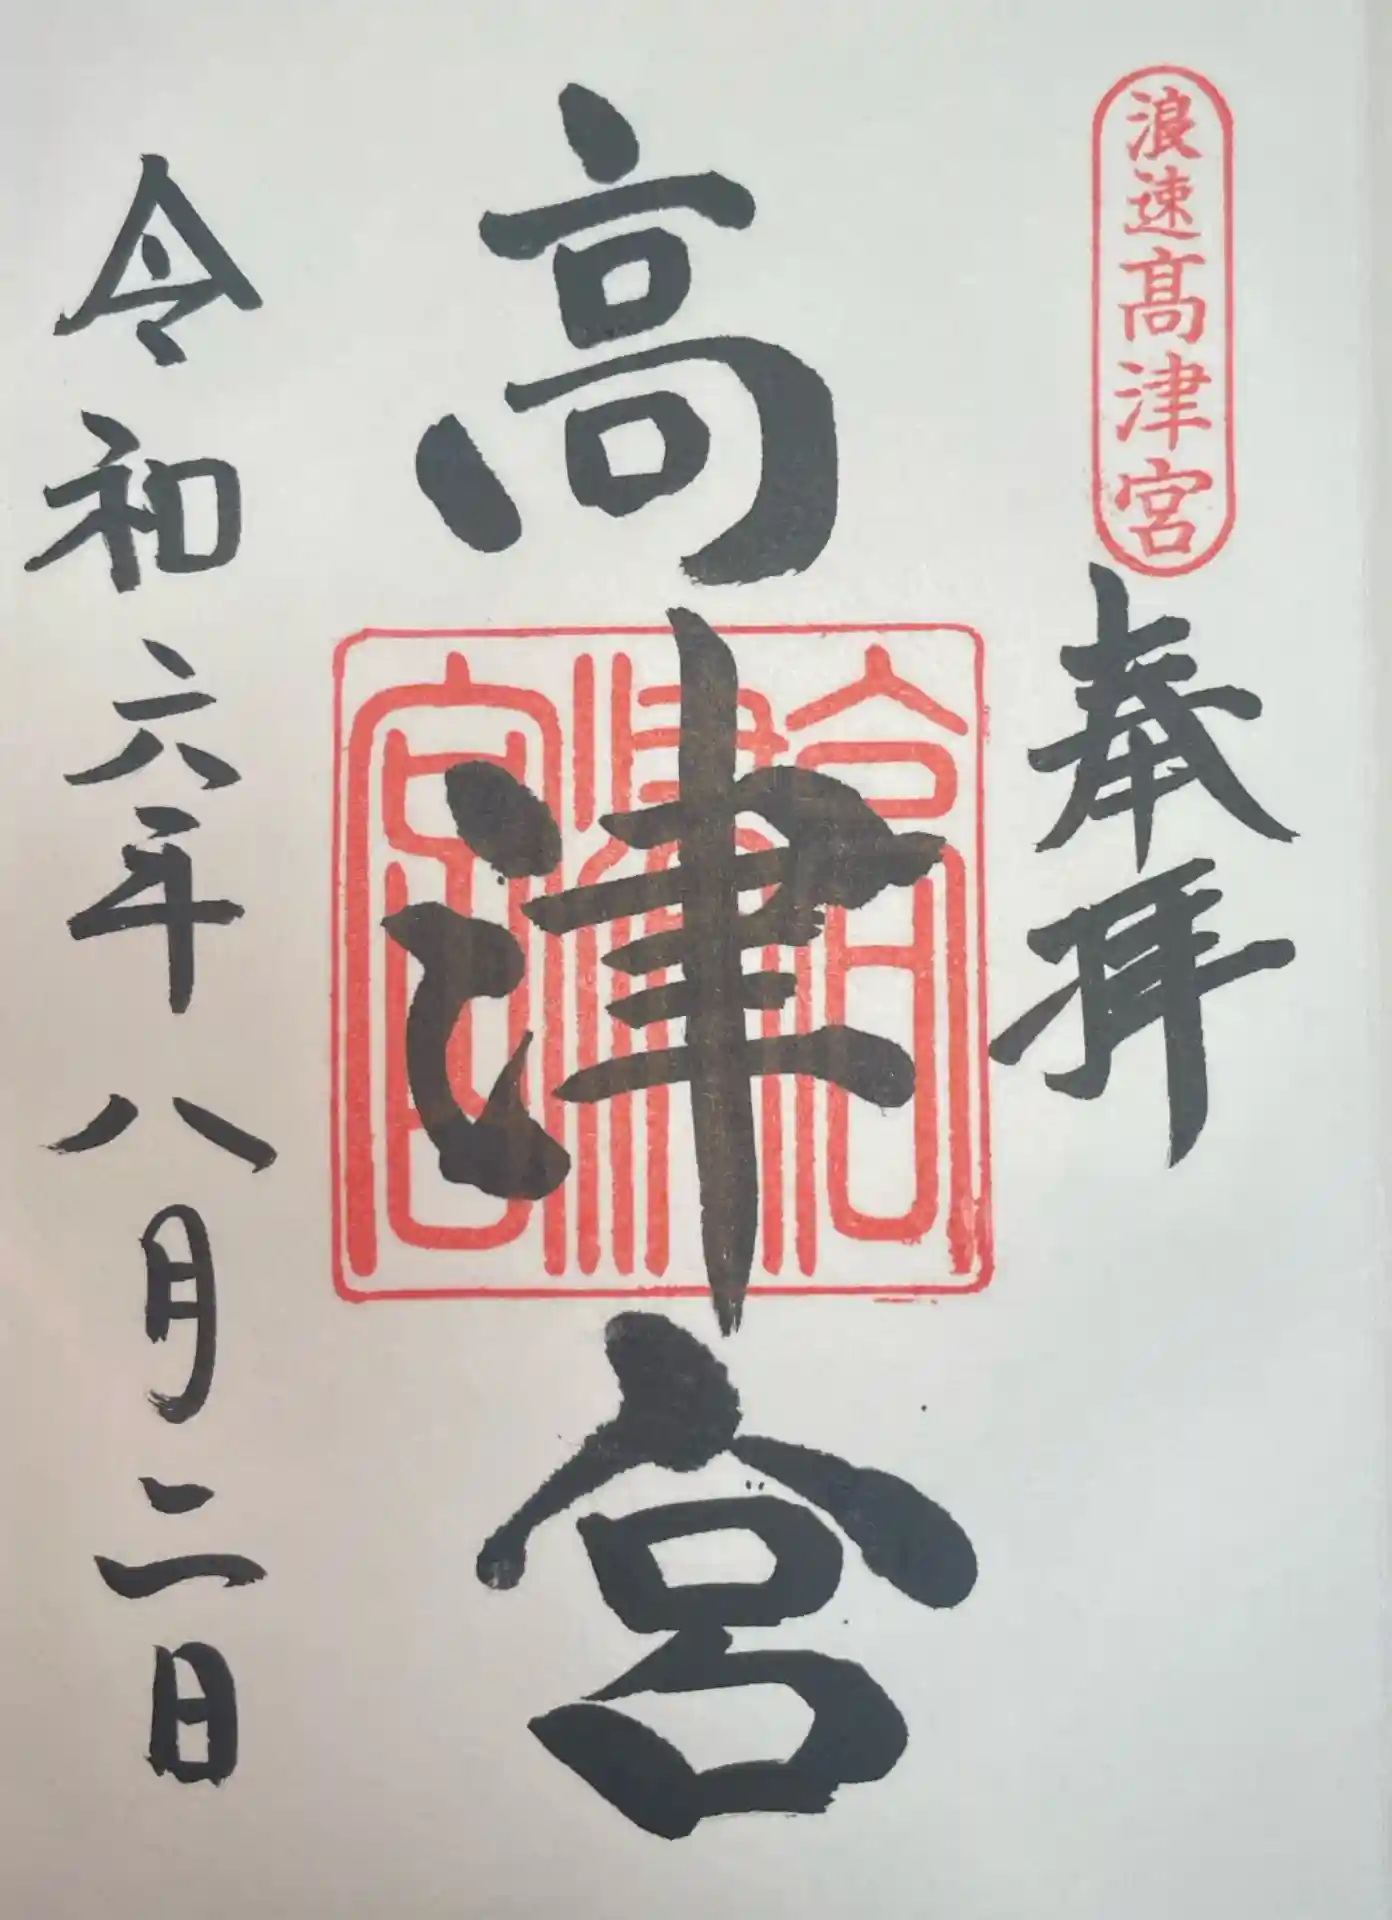 浪速髙津宮
奉拝
高津宮
高津宮
令和六年八月二日